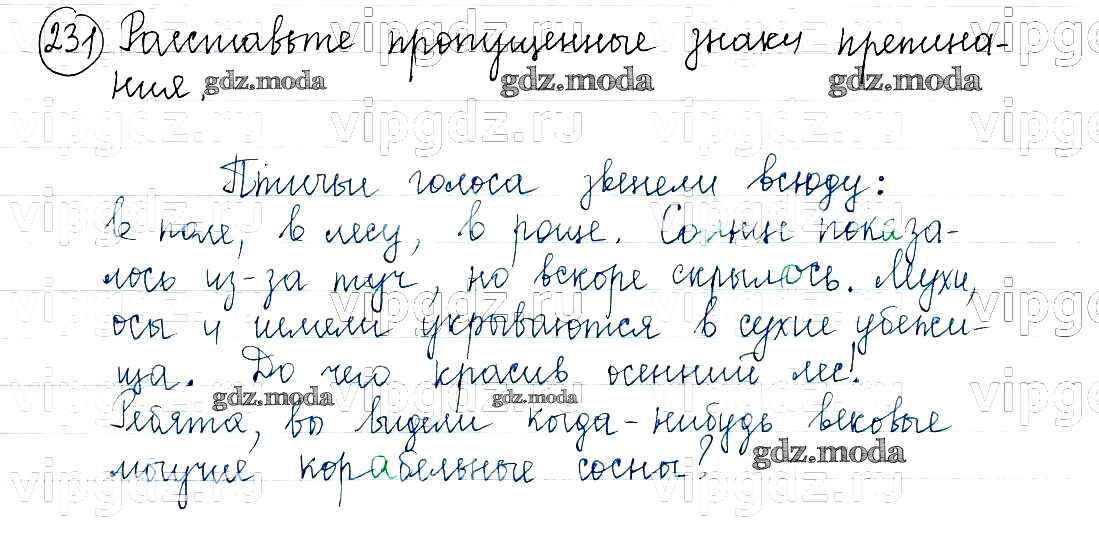 231 Расставьте пропущенные знаки препина-
ния.
Птичьи голоса звенели всюду:
в поле, в лесу, в роще. Солнце показа-
лось из-за туч, но вскоре скрылось. Мухи,
осы и шмели укрываются в сухие убежи-
ща. До чего красив осенний лес!
Ребята, вы видели когда-нибудь вековые
могучие корабельные сосны?
gdz.moda
gdz.moda
gdz.moda
gdz.moda
gdz.moda
gdz.moda
vipgdz.ru